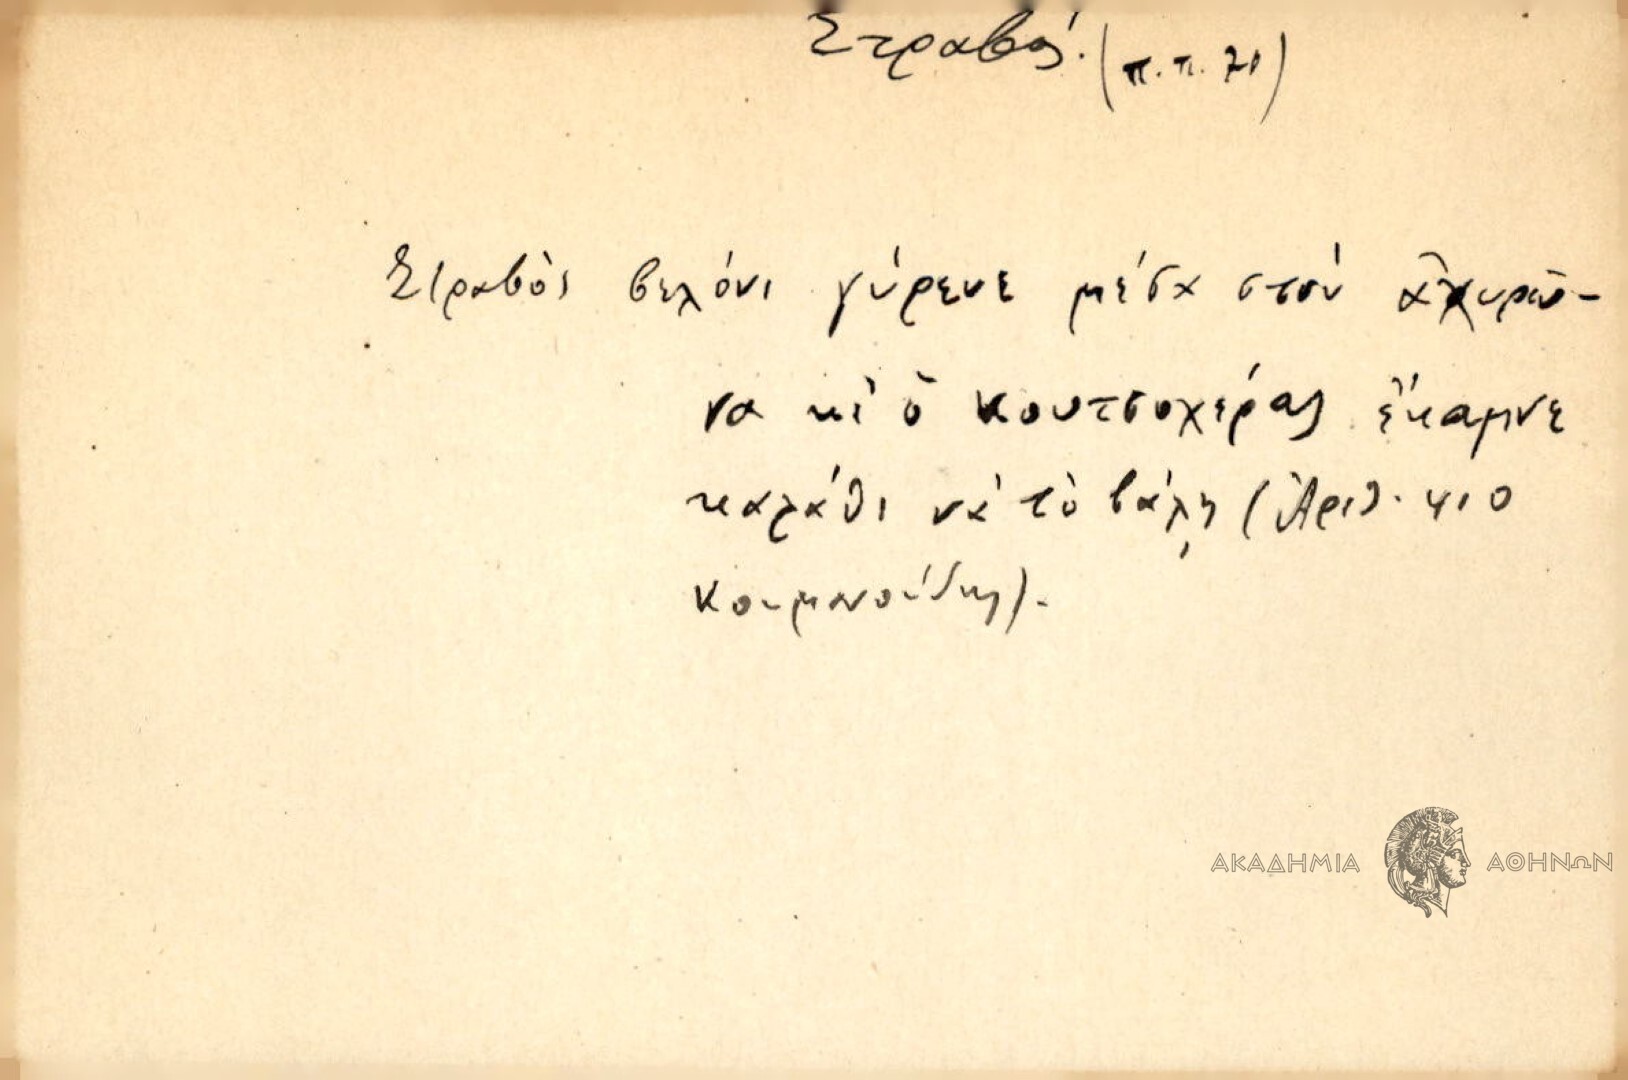 Στραβός. (π.π. 71)
Στραβὸς βελόνι γύρευε μέσα στὸν ἀχυρῶ-
να κι ὁ κουτσοχέρας ἔκαμνε
καλάθι νὰ τὸ βάλῃ (Ἀριθ. 410
Κουμανούδης).
ΑΚΑΔΗΜΙΑ ΑΘΗΝΩΝ